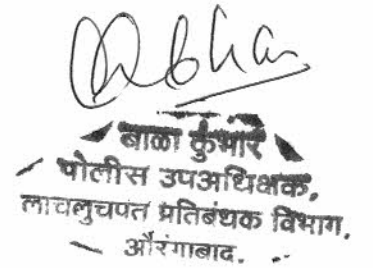 बाळा कुंभार
पोलीस उपअधिक्षक,
लाचलुचपत प्रतिबंधक विभाग,
औरंगाबाद.